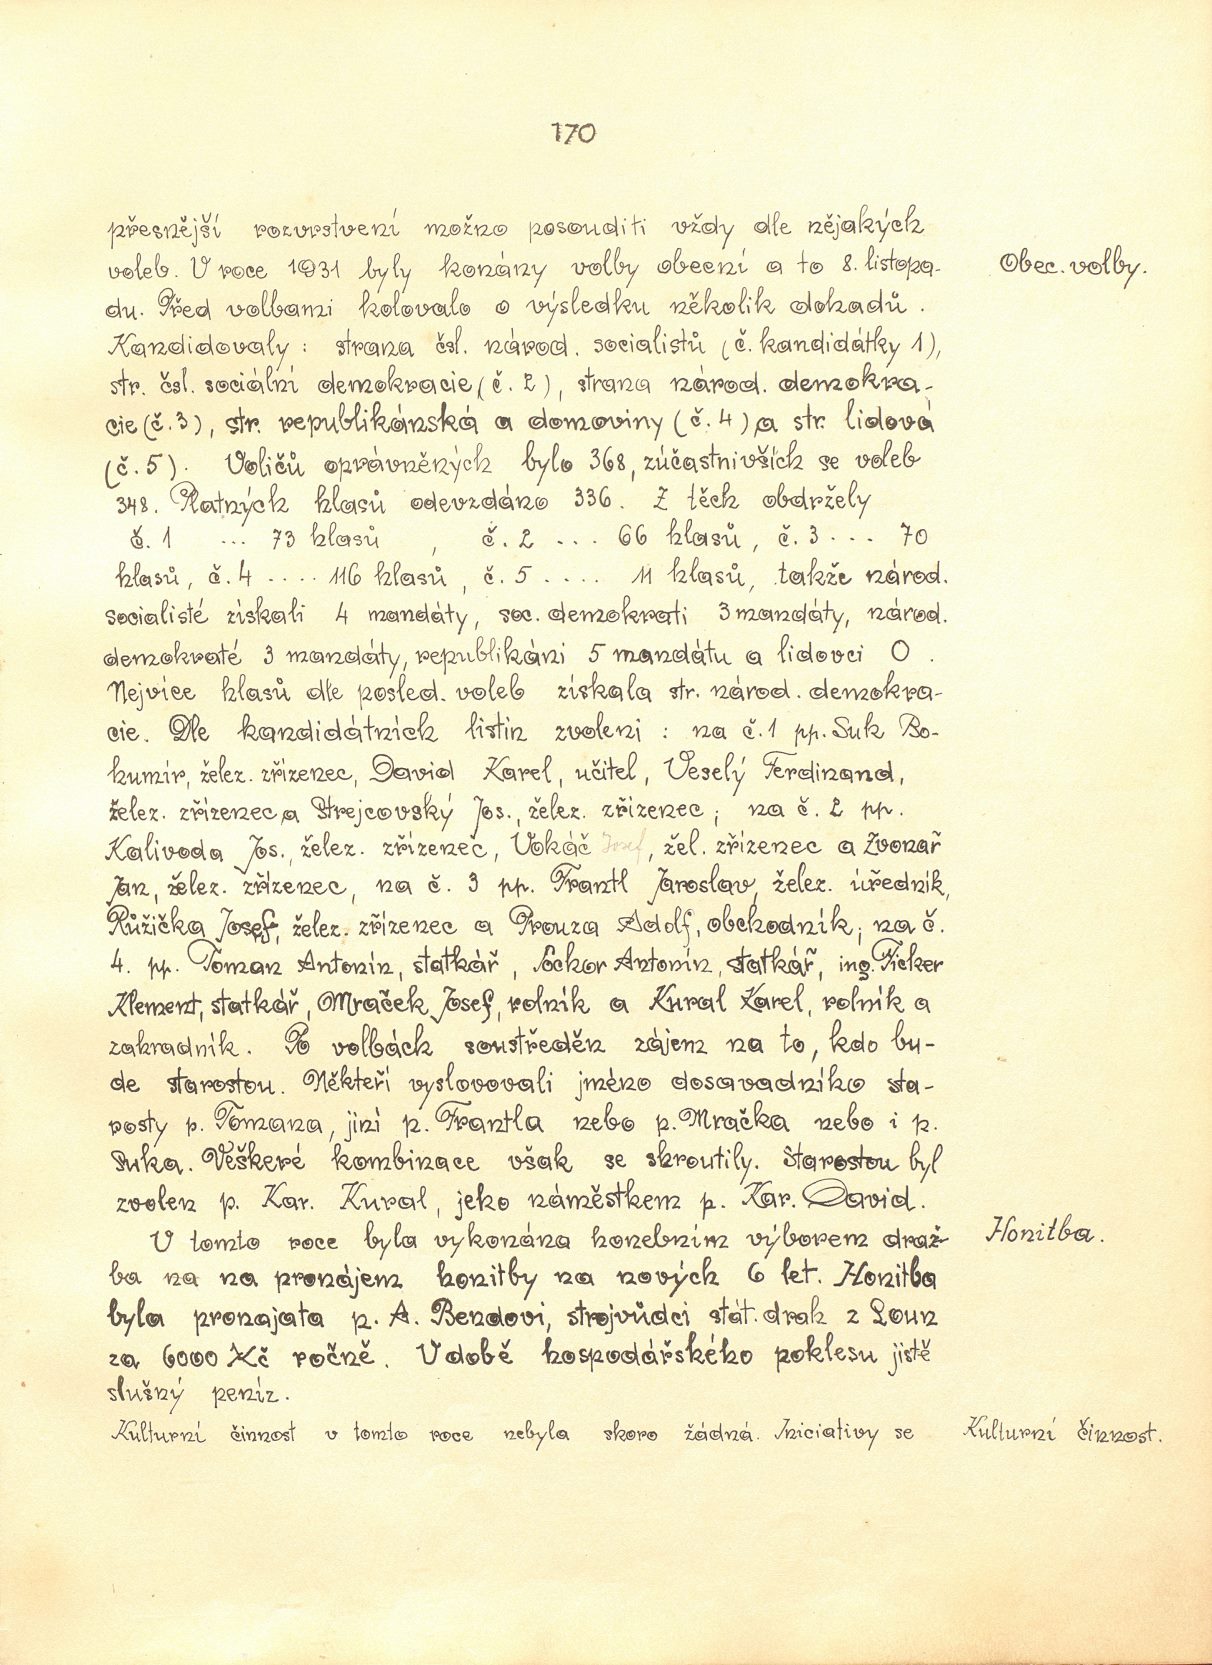 170
přesnější rozvrstvení možno posouditi vždy dle nějakých
voleb. V roce 1931 byly konány volby obecní a to 8. listopa-
Obec. volby.
du. Před volbami kolovalo o výsledku několik dohadů.
Kandidovaly: strana čsl. národ. socialistů (č. kandidátky 1),
str. čsl. sociální demokracie (č. 2), strana národ. demokra-
cie (č. 3), str. republikánská a domoviny (č. 4) a str. lidová
(č. 5). Voličů oprávněných bylo 368, zúčastnivších se voleb
348. Platných hlasů odevzdáno 336. Z těch obdržely
č. 1 ... 73 hlasů, č. 2 ... 66 hlasů, č. 3 ... 70
hlasů, č. 4 .... 116 hlasů, č. 5 .... 11 hlasů, takže národ.
socialisté získali 4 mandáty, soc. demokrati 3 mandáty, národ.
demokraté 3 mandáty, republikáni 5 mandátu a lidovci 0.
Nejvíce hlasů dle posled. voleb získala str. národ. demokra-
cie. Dle kandidátních listin zvoleni: na č. 1 pp. Suk Bo-
humír, želez. zřízenec, David Karel, učitel, Veselý Ferdinand,
želez. zřízenec a Strejcovský Jos., želez. zřízenec; na č. 2 pp.
Kalivoda Jos., želez. zřízenec, Vokáč Josef, žel. zřízenec a Zvonař
Jan, želez. zřízenec, na č. 3 pp. Frantl Jaroslav, želez. úředník,
Růžička Josef, želez. zřízenec a Prouza Adolf, obchodník; na č.
4. pp. Toman Antonín, statkář, Sochor Antonín, statkář, ing. Ficker
Klement, statkář, Mraček Josef, rolník a Kural Karel, rolník a
zahradník. Po volbách soustředěn zájem na to, kdo bu-
de starostou. Někteří vyslovovali jméno dosavadního sta-
rosty p. Tomana, jiní p. Frantla nebo p. Mračka nebo i p.
Suka. Veškeré kombinace však se zhroutily. Starostou byl
zvolen p. Kar. Kural, jeho náměstkem p. Kar. David.
V tomto roce byla vykonána honebním výborem draž-
Honitba.
ba na na pronájem honitby na nových 6 let. Honitba
byla pronajata p. A. Bendovi, strojvůdci stát. drah z Loun
za 6000 Kč ročně. V době hospodářského poklesu jistě
slušný peníz.
Kulturní činnost v tomto roce nebyla skoro žádná. Iniciativy se
Kulturní činnost.